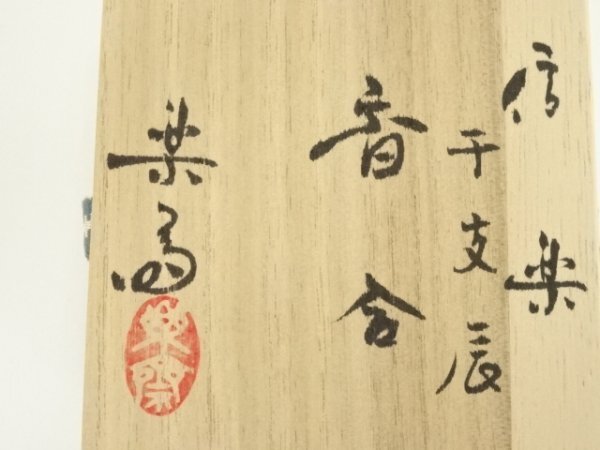 信楽
干支辰
香合
楽斎